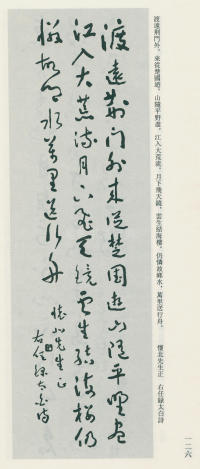 渡遠荆門外，來從楚國遊，山隨平野盡，江入大荒流，月下飛天鏡，雲生結海樓，仍憐故鄉水，萬里送行舟。　懷北先生正　右任録太白詩
渡遠荆门外來從楚國遊山隨平野盡
江入大荒流月下飛天鏡雲生結海樓仍
憐故鄉水萬里送行舟
懷北先生正
右任録太白詩
一二六